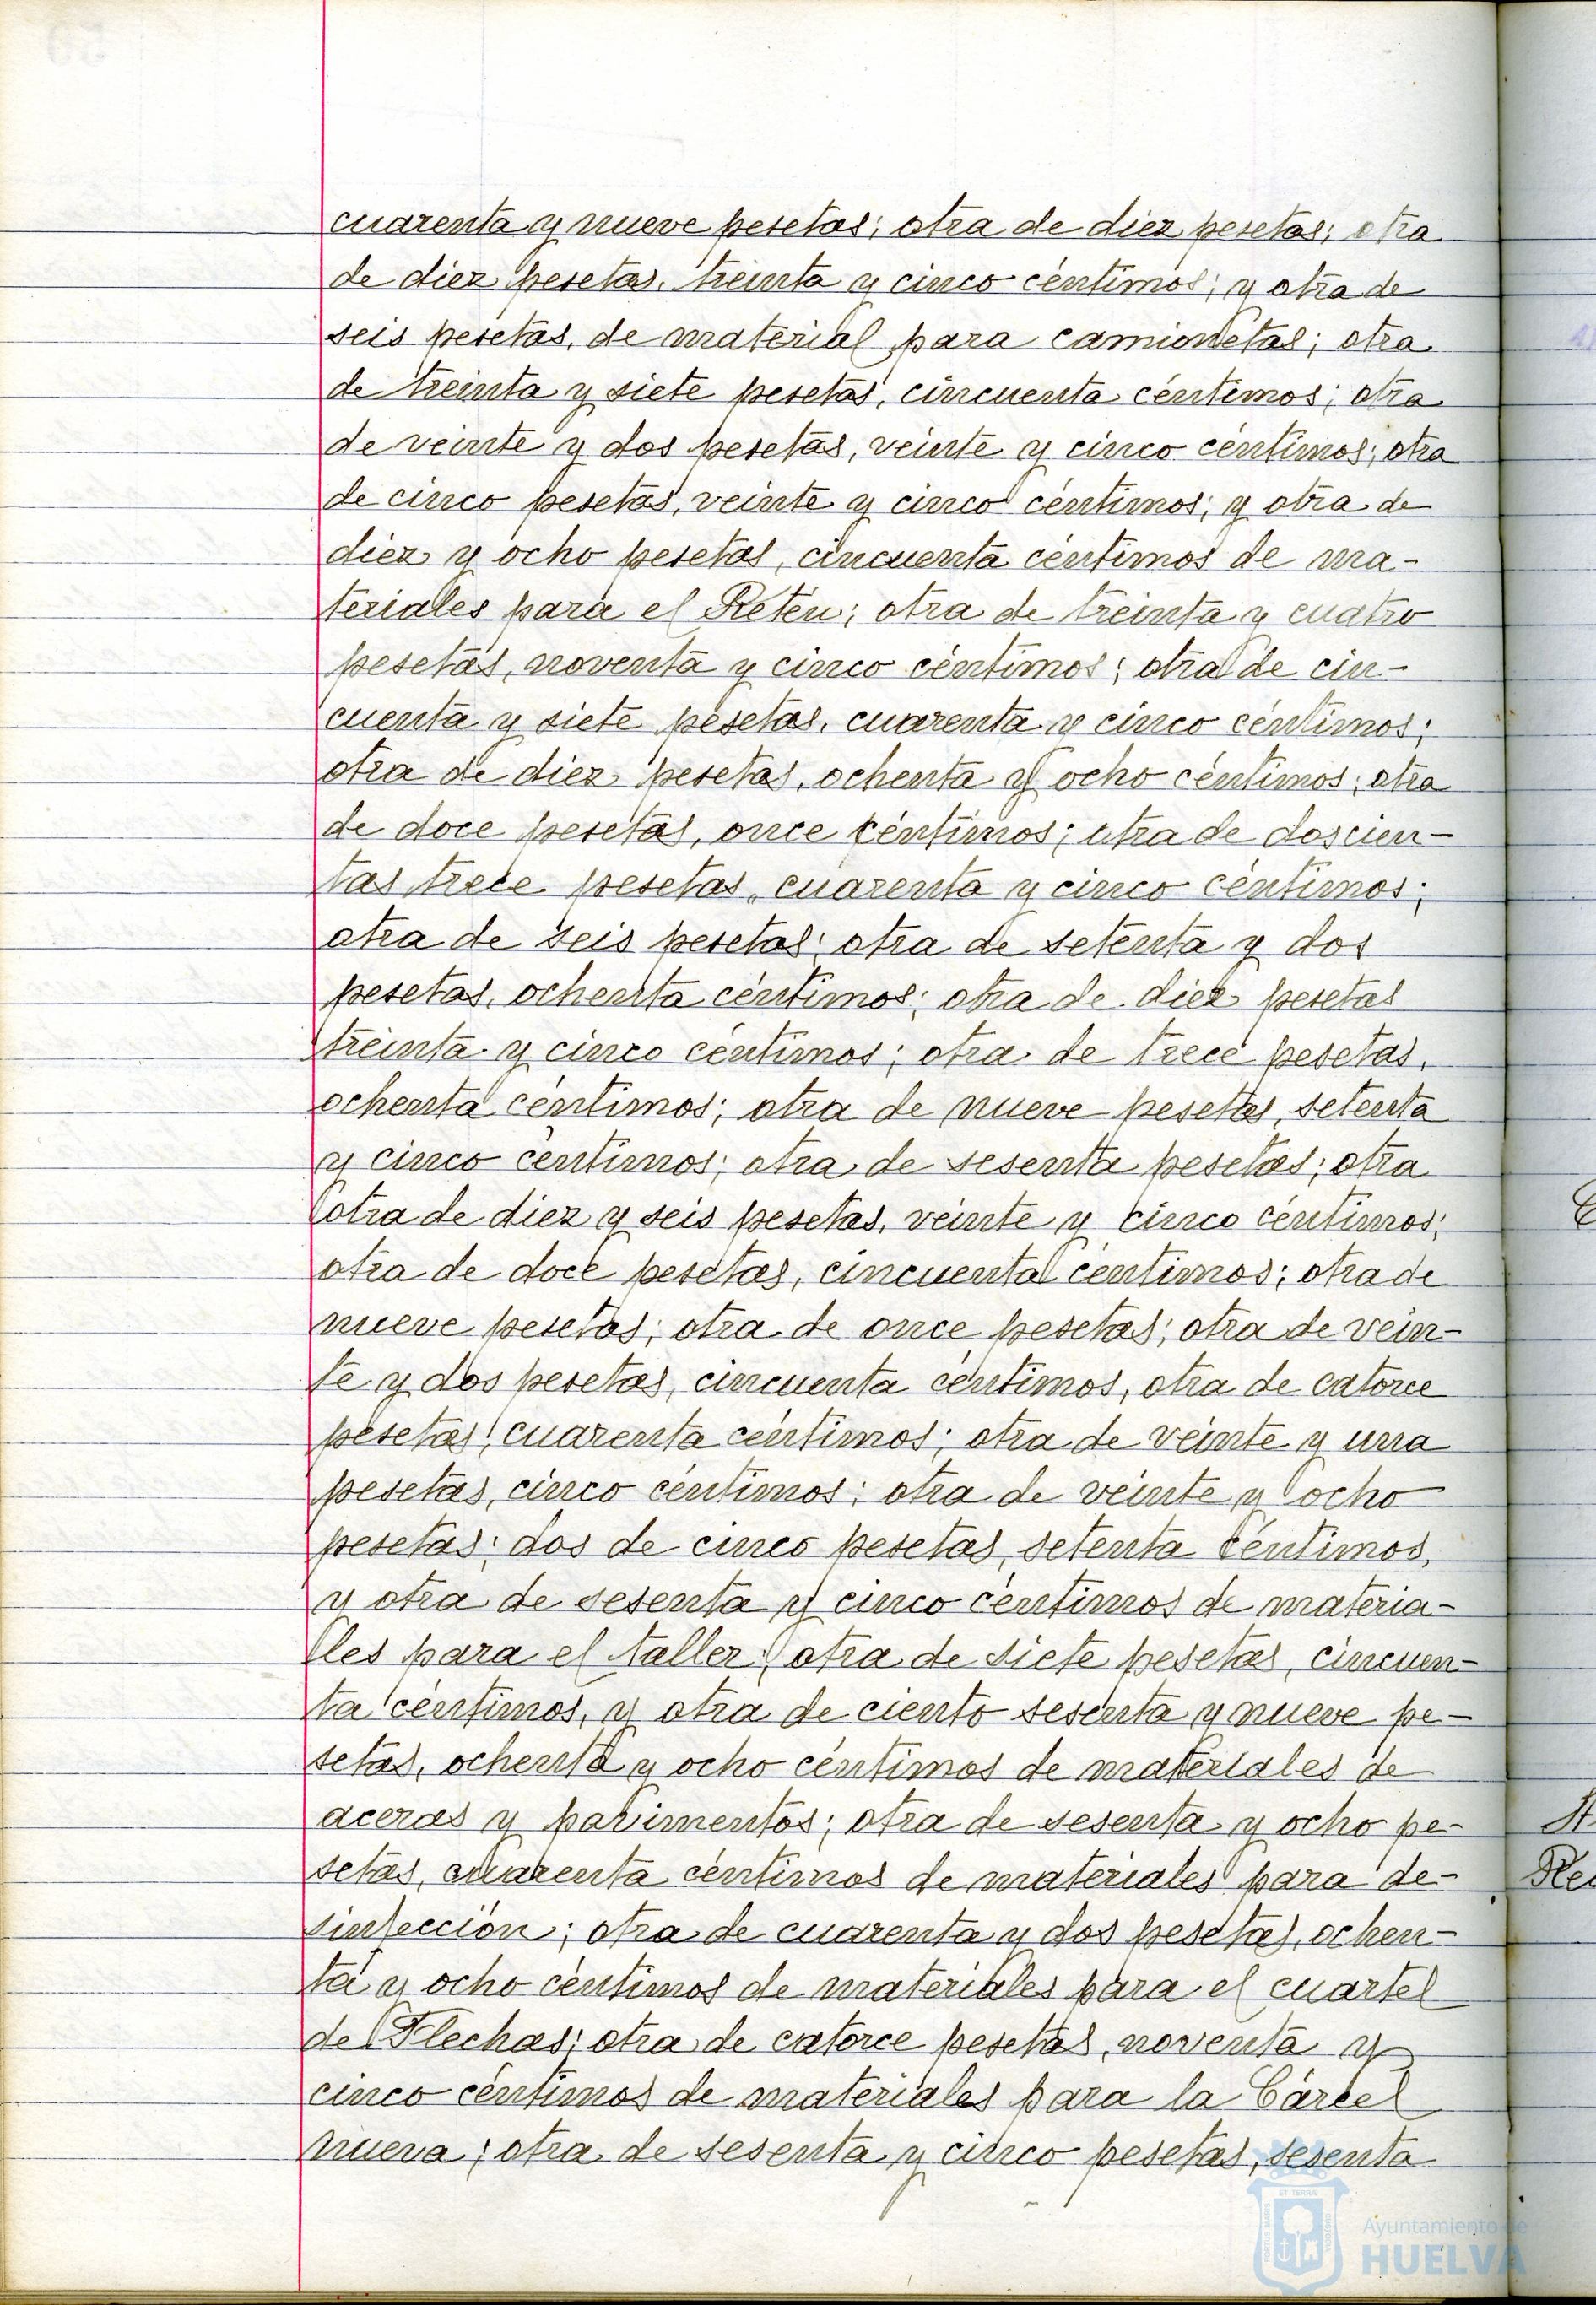 cuarenta y nueve pesetas; otra de diez pesetas; otra
de diez pesetas, treinta y cinco céntimos; y otra de
seis pesetas, de material para camionetas; otra
de treinta y siete pesetas, cincuenta céntimos; otra
de veinte y dos pesetas, veinte y cinco céntimos; otra
de cinco pesetas, veinte y cinco céntimos; y otra de
diez y ocho pesetas, cincuenta céntimos de ma-
teriales para el Retén; otra de treinta y cuatro
pesetas, noventa y cinco céntimos; otra de cin-
cuenta y siete pesetas, cuarenta y cinco céntimos;
otra de diez pesetas, ochenta y ocho céntimos; otra
de doce pesetas, once céntimos; otra de doscien-
tas trece pesetas, cuarenta y cinco céntimos;
otra de seis pesetas; otra de setenta y dos
pesetas, ochenta céntimos; otra de diez pesetas
treinta y cinco céntimos; otra de trece pesetas,
ochenta céntimos; otra de nueve pesetas, setenta
y cinco céntimos; otra de sesenta pesetas; otra
otra de diez y seis pesetas, veinte y cinco céntimos;
otra de doce pesetas, cincuenta céntimos; otra de
nueve pesetas; otra de once pesetas; otra de vein-
te y dos pesetas, cincuenta céntimos, otra de catorce
pesetas, cuarenta céntimos; otra de veinte y una
pesetas, cinco céntimos; otra de veinte y ocho
pesetas; dos de cinco pesetas, setenta céntimos,
y otra de sesenta y cinco céntimos de materia-
les para el taller; otra de siete pesetas, cincuen-
ta céntimos, y otra de ciento sesenta y nueve pe-
setas, ochenta y ocho céntimos de materiales de
aceras y pavimentos; otra de sesenta y ocho pe-
setas, cuarenta céntimos de materiales para de-
sinfección; otra de cuarenta y dos pesetas, ochen-
ta y ocho céntimos de materiales para el cuartel
de Flechas; otra de catorce pesetas, noventa y
cinco céntimos de materiales para la Cárcel
nueva; otra de sesenta y cinco pesetas, sesenta
Ayuntamiento de
HUELVA